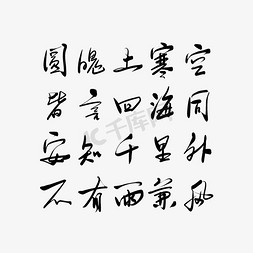 圓魄上寒空
皆言四海同
安知千里外
不有雨兼风
千库网